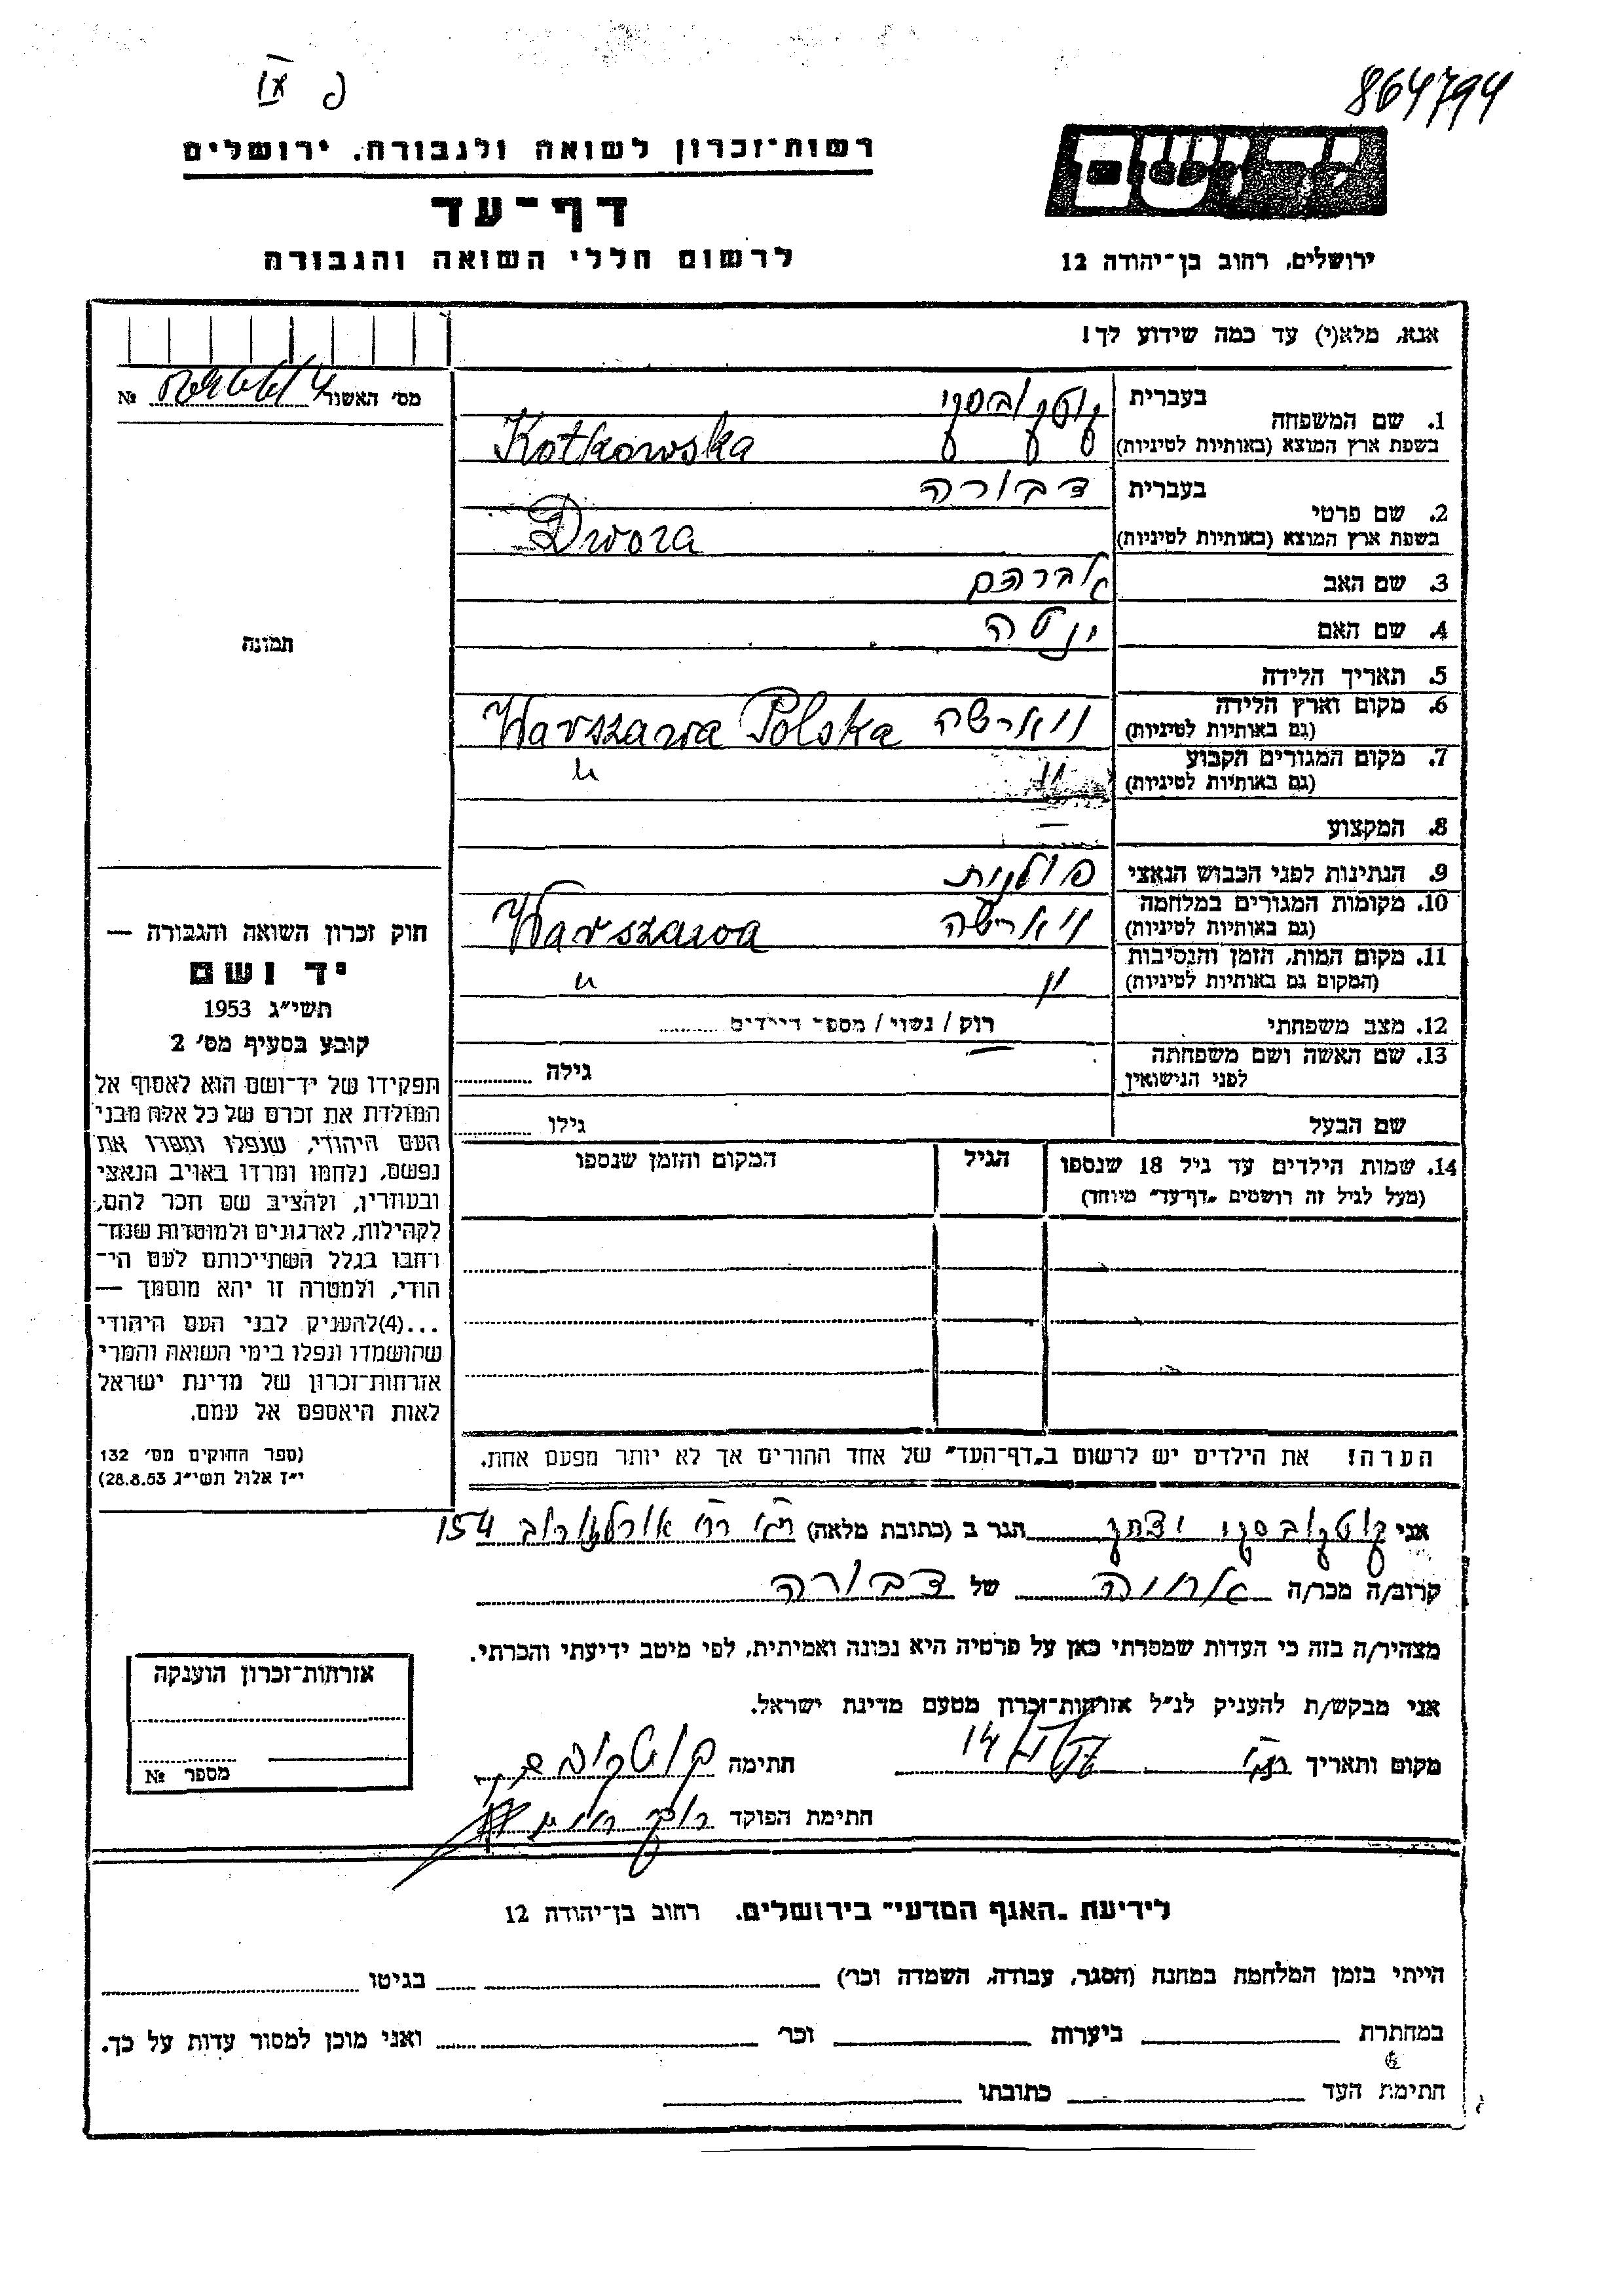 864794
רשות-זכרון לשואה ולגבורה. ירושלים
יד ושם
דף-עד
לרשום חללי השואה והגבורה
ירושלים, רחוב בן-יהודה 12
אנא, מלא(י) עד כמה שידוע לך!
מס׳ האשור №
1. שם המשפחה בעברית קוטקובסקי
בשפת ארץ המוצא (באותיות לטיניות) Kotkowska
2. שם פרטי בעברית דבורה
בשפת ארץ המוצא (באותיות לטיניות) Dwora
3. שם האב אברהם
4. שם האם
5. תאריך הלידה
6. מקום וארץ הלידה (גם באותיות לטיניות) ווארשה Warszawa Polska
7. מקום המגורים הקבוע (גם באותיות לטיניות) " "
8. המקצוע —
9. הנתינות לפני הכבוש הנאצי פולנית
10. מקומות המגורים במלחמה (גם באותיות לטיניות) ווארשה Warszawa
11. מקום המות, הזמן והנסיבות (המקום גם באותיות לטיניות) " "
12. מצב משפחתי רוק / נשוי / מספר ילדים
13. שם האשה ושם משפחתה לפני הנישואין גילה
שם הבעל גילו
14. שמות הילדים עד גיל 18 שנספו (מעל לגיל זה רושמים "דף-עד" מיוחד) הגיל המקום והזמן שנספו
הערה! את הילדים יש לרשום ב"דף-העד" של אחד ההורים אך לא יותר מפעם אחת.
תמונה
חוק זכרון השואה והגבורה —
יד ושם
תשי"ג 1953
קובע בסעיף מס׳ 2
תפקידו של יד-ושם הוא לאסוף אל
המולדת את זכרם של כל אלה מבני
העם היהודי, שנפלו ומסרו את
נפשם, נלחמו ומרדו באויב הנאצי
ובעוזריו, ולהציב שם וזכר להם,
לקהילות, לארגונים ולמוסדות שנח-
רבו בגלל השתייכותם לעם הי-
הודי, ולמטרה זו יהא מוסמך —
...(4)להעניק לבני העם היהודי
שהושמדו ונפלו בימי השואה והמרי
אזרחות-זכרון של מדינת ישראל
לאות היאספם אל עמם.
(ספר החוקים מס׳ 132
י"ז אלול תשי"ג 28.8.53)
אני קוטקובסקי יצחק הגר ב (כתובת מלאה) ארלוזרוב 154
קרוב/ה מכר/ה אחיה של דבורה
מצהיר/ה בזה כי העדות שמסרתי כאן על פרטיה היא נכונה ואמיתית, לפי מיטב ידיעתי והכרתי.
אני מבקש/ת להעניק לנ"ל אזרחות-זכרון מטעם מדינת ישראל.
מקום ותאריך חתימה קוטקובסקי
חתימת הפוקד
אזרחות-זכרון הוענקה
מספר №
לידיעת "האגף המדעי" בירושלים. רחוב בן-יהודה 12
הייתי בזמן המלחמה במחנה (הסגר, עבודה, השמדה וכר׳) בגיטו
במחתרת ביערות וכר׳ ואני מוכן למסור עדות על כך.
חתימת העד כתובתו